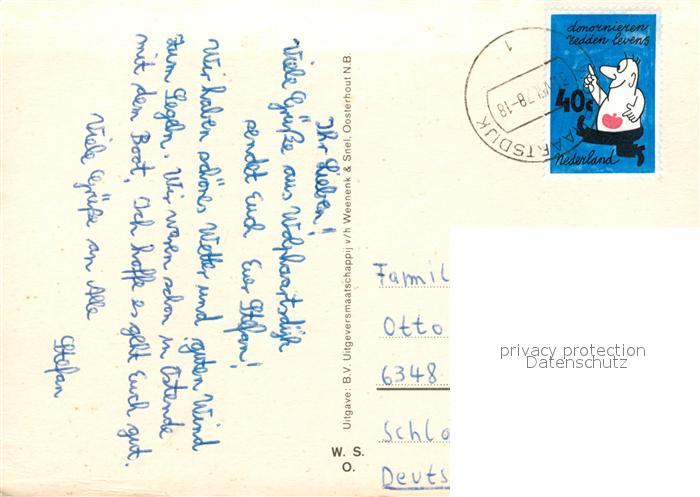 Ihr Lieben!
Viele Grüße aus Wolphaartsdijk
sendet Euch Euer Stefan!
Wir haben schönes Wetter und guten Wind
zum Segeln. Wir waren schon in Ostende
mit dem Boot. Ich hoffe es geht Euch gut.
Viele Grüße an Alle
Stefan
Uitgave: B.V. Uitgeversmaatschappij v/h Weenenk & Snel, Oosterhout N.B.
W. S.
O.
donornieren
redden levens
40c
Nederland
1
78-18
AARTSDIJK
Famil
Otto
6348
Schlo
Deuts
privacy protection
Datenschutz